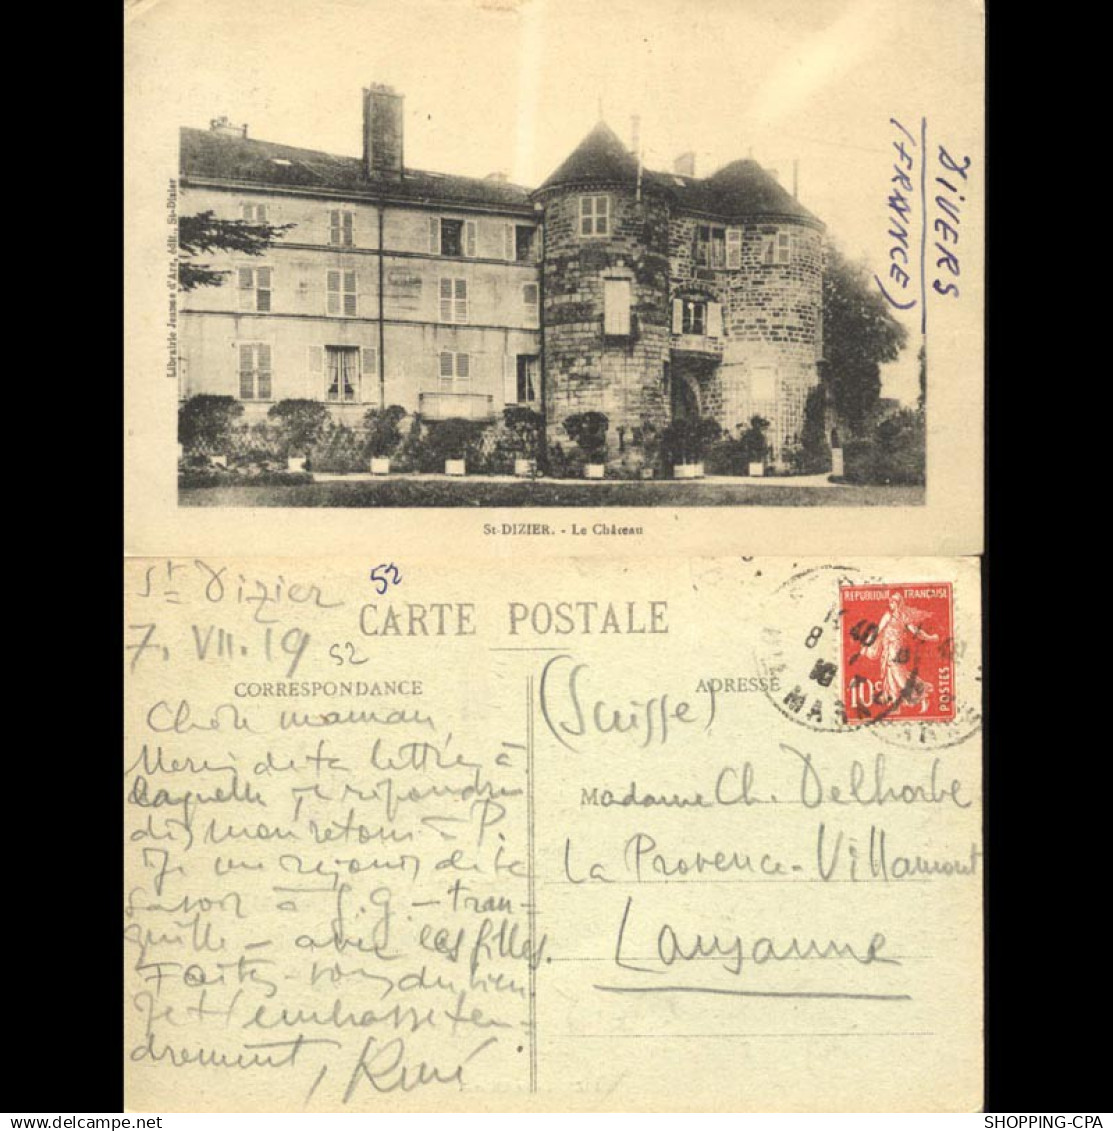 Librairie Jeanne d'Arc, édit., St-Dizier
DIVERS
(FRANCE)
St-DIZIER. - Le Château
St Dizier
52
CARTE POSTALE
7. VII. 19
52
CORRESPONDANCE
ADRESSE
REPUBLIQUE FRANÇAISE
10c
POSTES
MARNE
Chère maman,
Merci de ta lettre, à
laquelle je répondrai
dès mon retour à P.
Je me réjouis de te
savoir à S.G. - tran-
quille - avec les filles.
Faites-vous du bien
Je t'embrasse ten-
drement, René
(Suisse)
Madame Ch. Delhorbe
La Provence-Villamont
Lausanne
SHOPPING-CPA